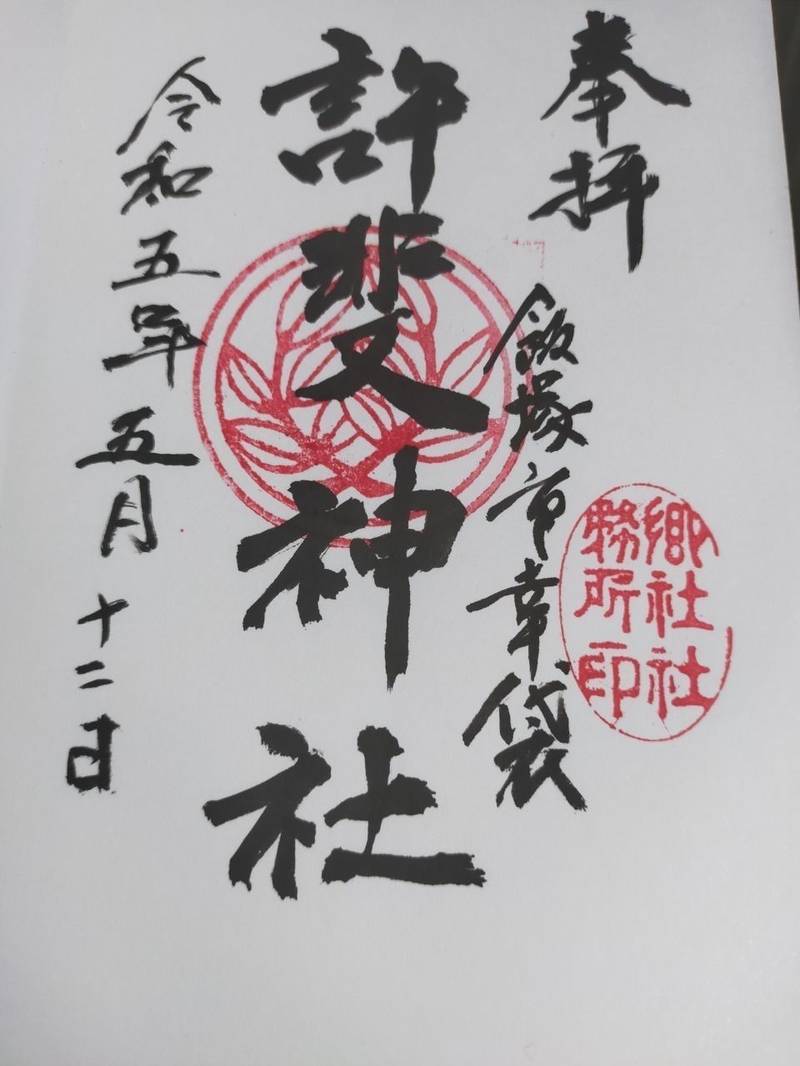 奉拝
飯塚市幸袋
郷社社
務所印
許斐神社
令和五年五月十二日